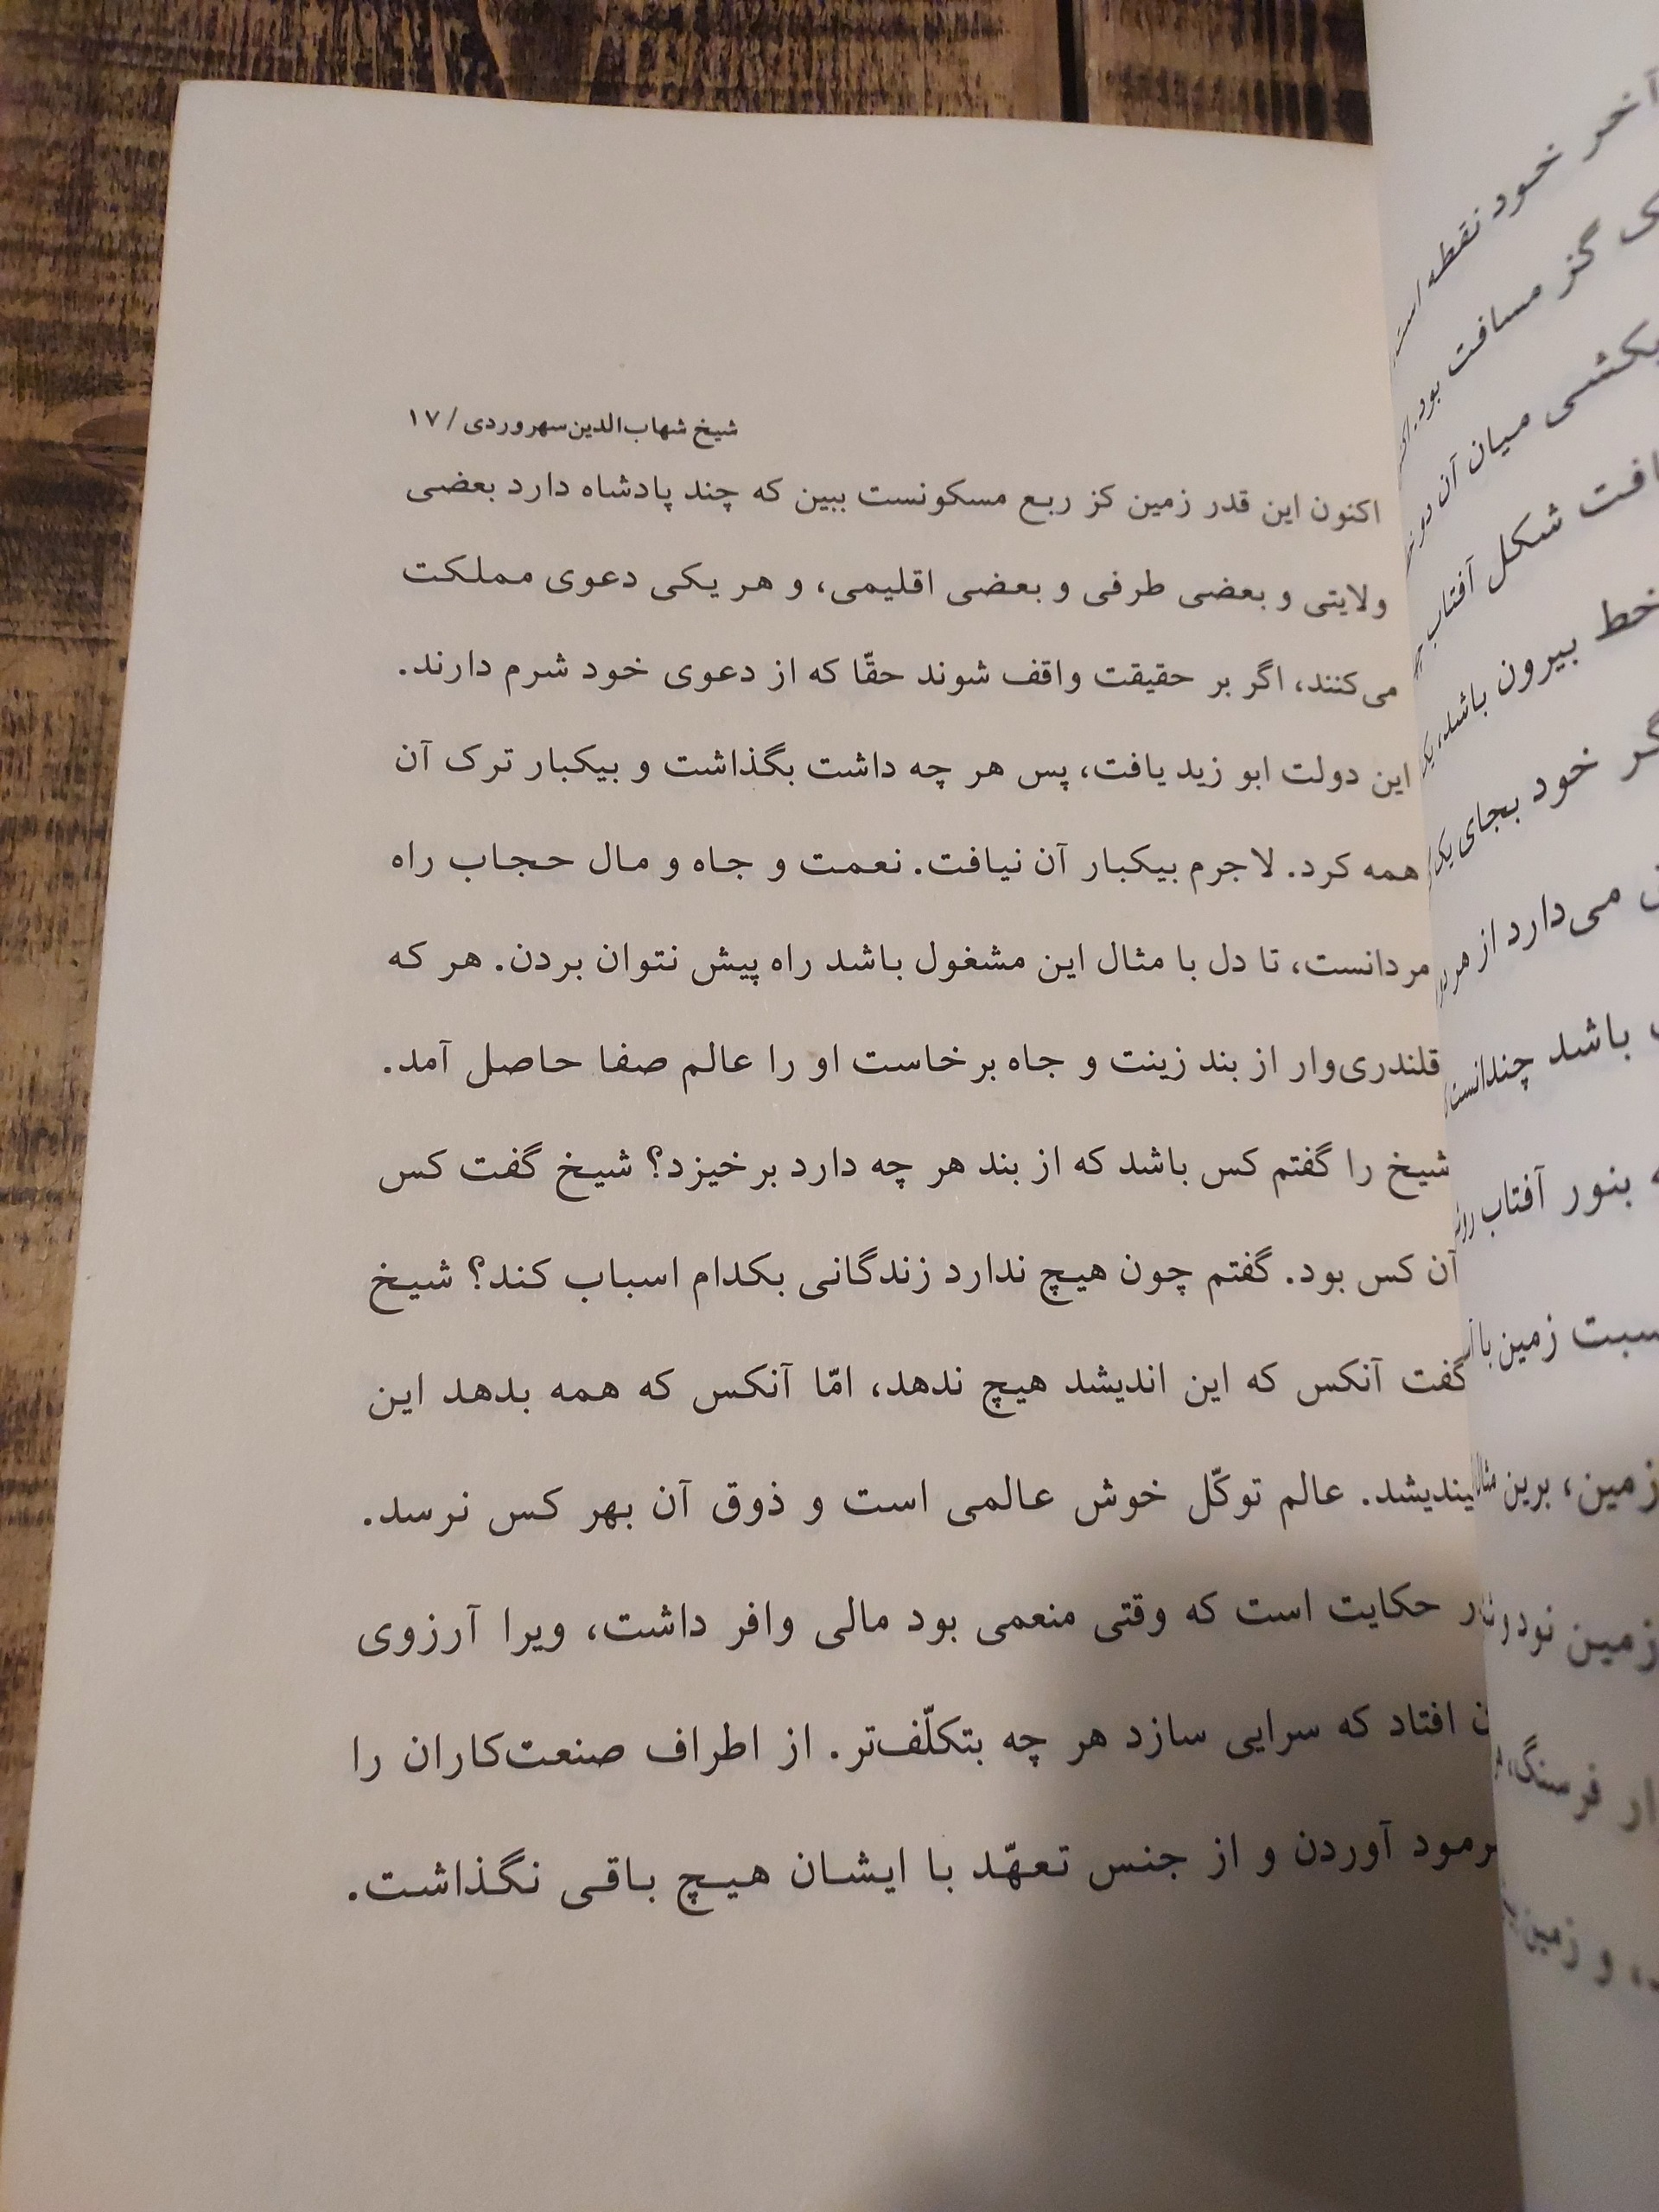 شیخ شهاب‌الدین‌سهروردی / ۱۷
اکنون این قدر زمین کز ربع مسکونست ببین که چند پادشاه دارد بعضی
ولایتی و بعضی طرفی و بعضی اقلیمی، و هر یکی دعوی مملکت
می‌کنند، اگر بر حقیقت واقف شوند حقّا که از دعوی خود شرم دارند.
این دولت ابو زید یافت، پس هر چه داشت بگذاشت و بیکبار ترک آن
همه کرد. لاجرم بیکبار آن نیافت. نعمت و جاه و مال حجاب راه
مردانست، تا دل با مثال این مشغول باشد راه پیش نتوان بردن. هر که
قلندری‌وار از بند زینت و جاه برخاست او را عالم صفا حاصل آمد.
شیخ را گفتم کس باشد که از بند هر چه دارد برخیزد؟ شیخ گفت کس
آن کس بود. گفتم چون هیچ ندارد زندگانی بکدام اسباب کند؟ شیخ
گفت آنکس که این اندیشد هیچ ندهد، امّا آنکس که همه بدهد این
یندیشد. عالم توکّل خوش عالمی است و ذوق آن بهر کس نرسد.
حکایت است که وقتی منعمی بود مالی وافر داشت، ویرا آرزوی
افتاد که سرایی سازد هر چه بتکلّف‌تر. از اطراف صنعت‌کاران را
رمود آوردن و از جنس تعهّد با ایشان هیچ باقی نگذاشت.
آخر خود نقطه است
گز مسافت بود
میان آن دو
شکل آفتاب
خط بیرون باشد،
خود بجای یک
می‌دارد از
باشد چندانست
بنور آفتاب
زمین با
زمین، برین
زمین نود و
فرسنگ،
و زمین